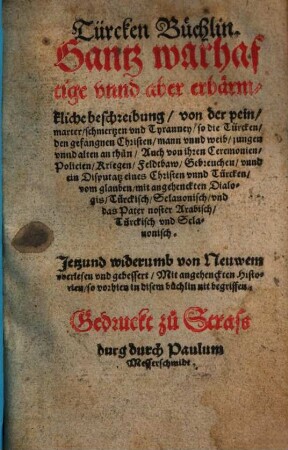 Türcken Büchlin.
Gantz warhaf
tige vnnd aber erbärm⸗
kliche beschreibung / von der pein /
marter / schmertzen vnd Tyranney / so die Türcken /
den gefangnen Christen / mann vnnd weib / jungen
vnnd alten an thůn / Auch von ihren Ceremonien /
Policien / Kriegen / Feldtbaw / Gebreuchen / vnnd
ein Disputatz eines Christen vnnd Türcken /
vom glauben / mit angehenckten Dialo⸗
gis / Türckisch / Selauonisch / vnd
das Pater noster Arabisch /
Türckisch vnd Sela⸗
uonisch.
Jetzund widerumb von Neuwem
vberlesen vnd gebessert / Mit angehenckten Histo⸗
rien / so vorhien in disem büchlin nit begriffen.
Gedruckt zů Strass
burg durch Paulum
Messerschmidt.